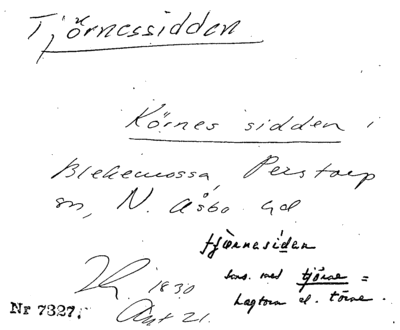 Tjörnessidden
Körnes sidden i
Blekemossa, Perstorp
sn, N. Åsbo hd
tjörnasiden
sms. med tjörne =
hagtorn el. törne.
1830
Akt 21.
Nr 7327.